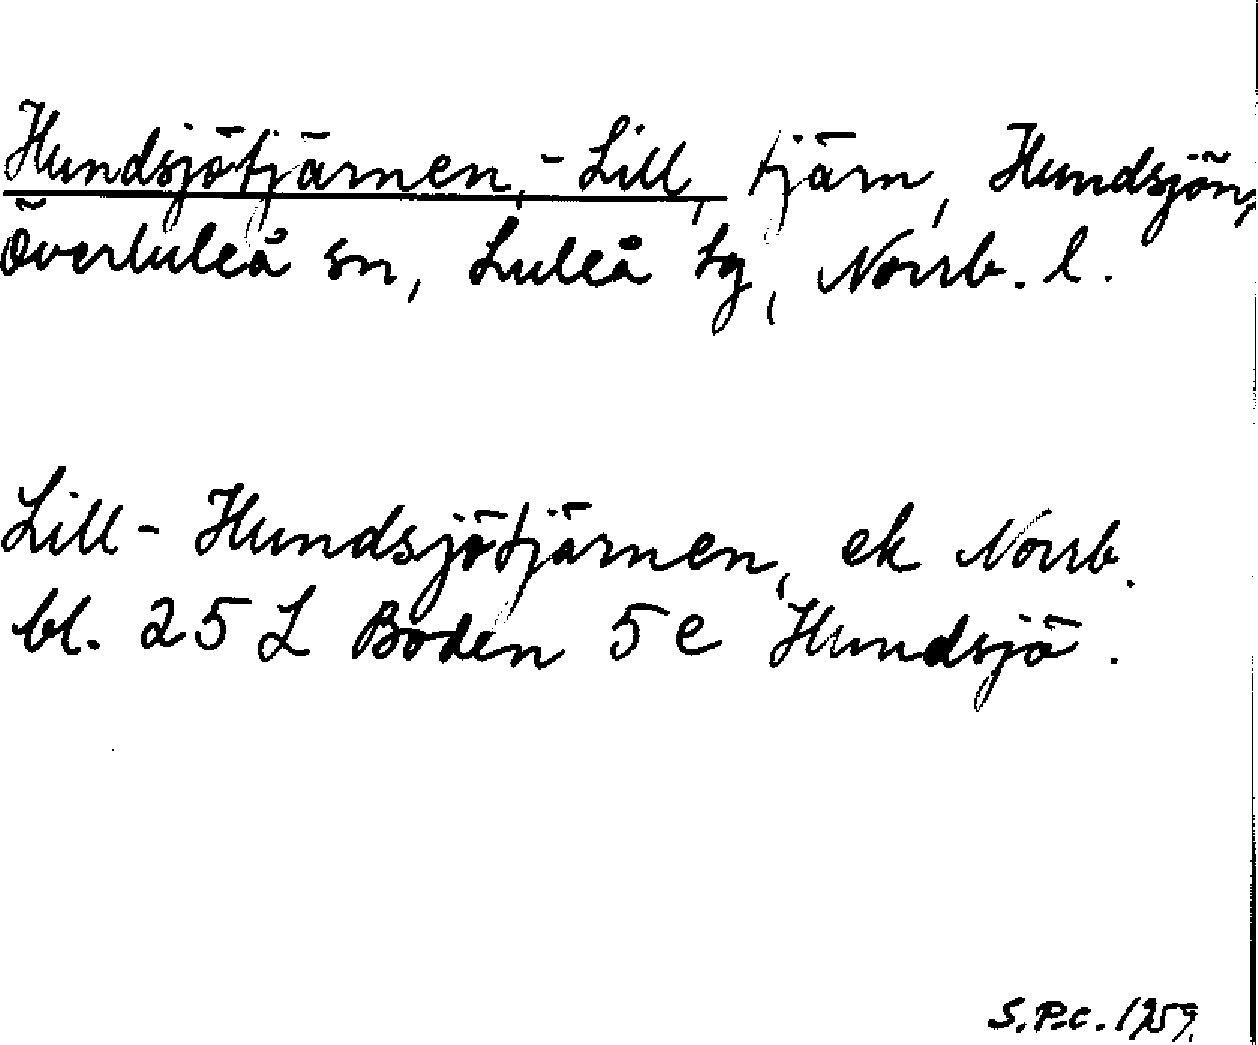 Hundsjötjärnen, -Lill, tjärn, Hundsjön,
Överluleå sn, Luleå tg, Norrb. l.
Lill-Hundsjötjärnen, ek Norrb.
bl. 25 L Boden 5 e Hundsjö.
S.P-c. 1959.